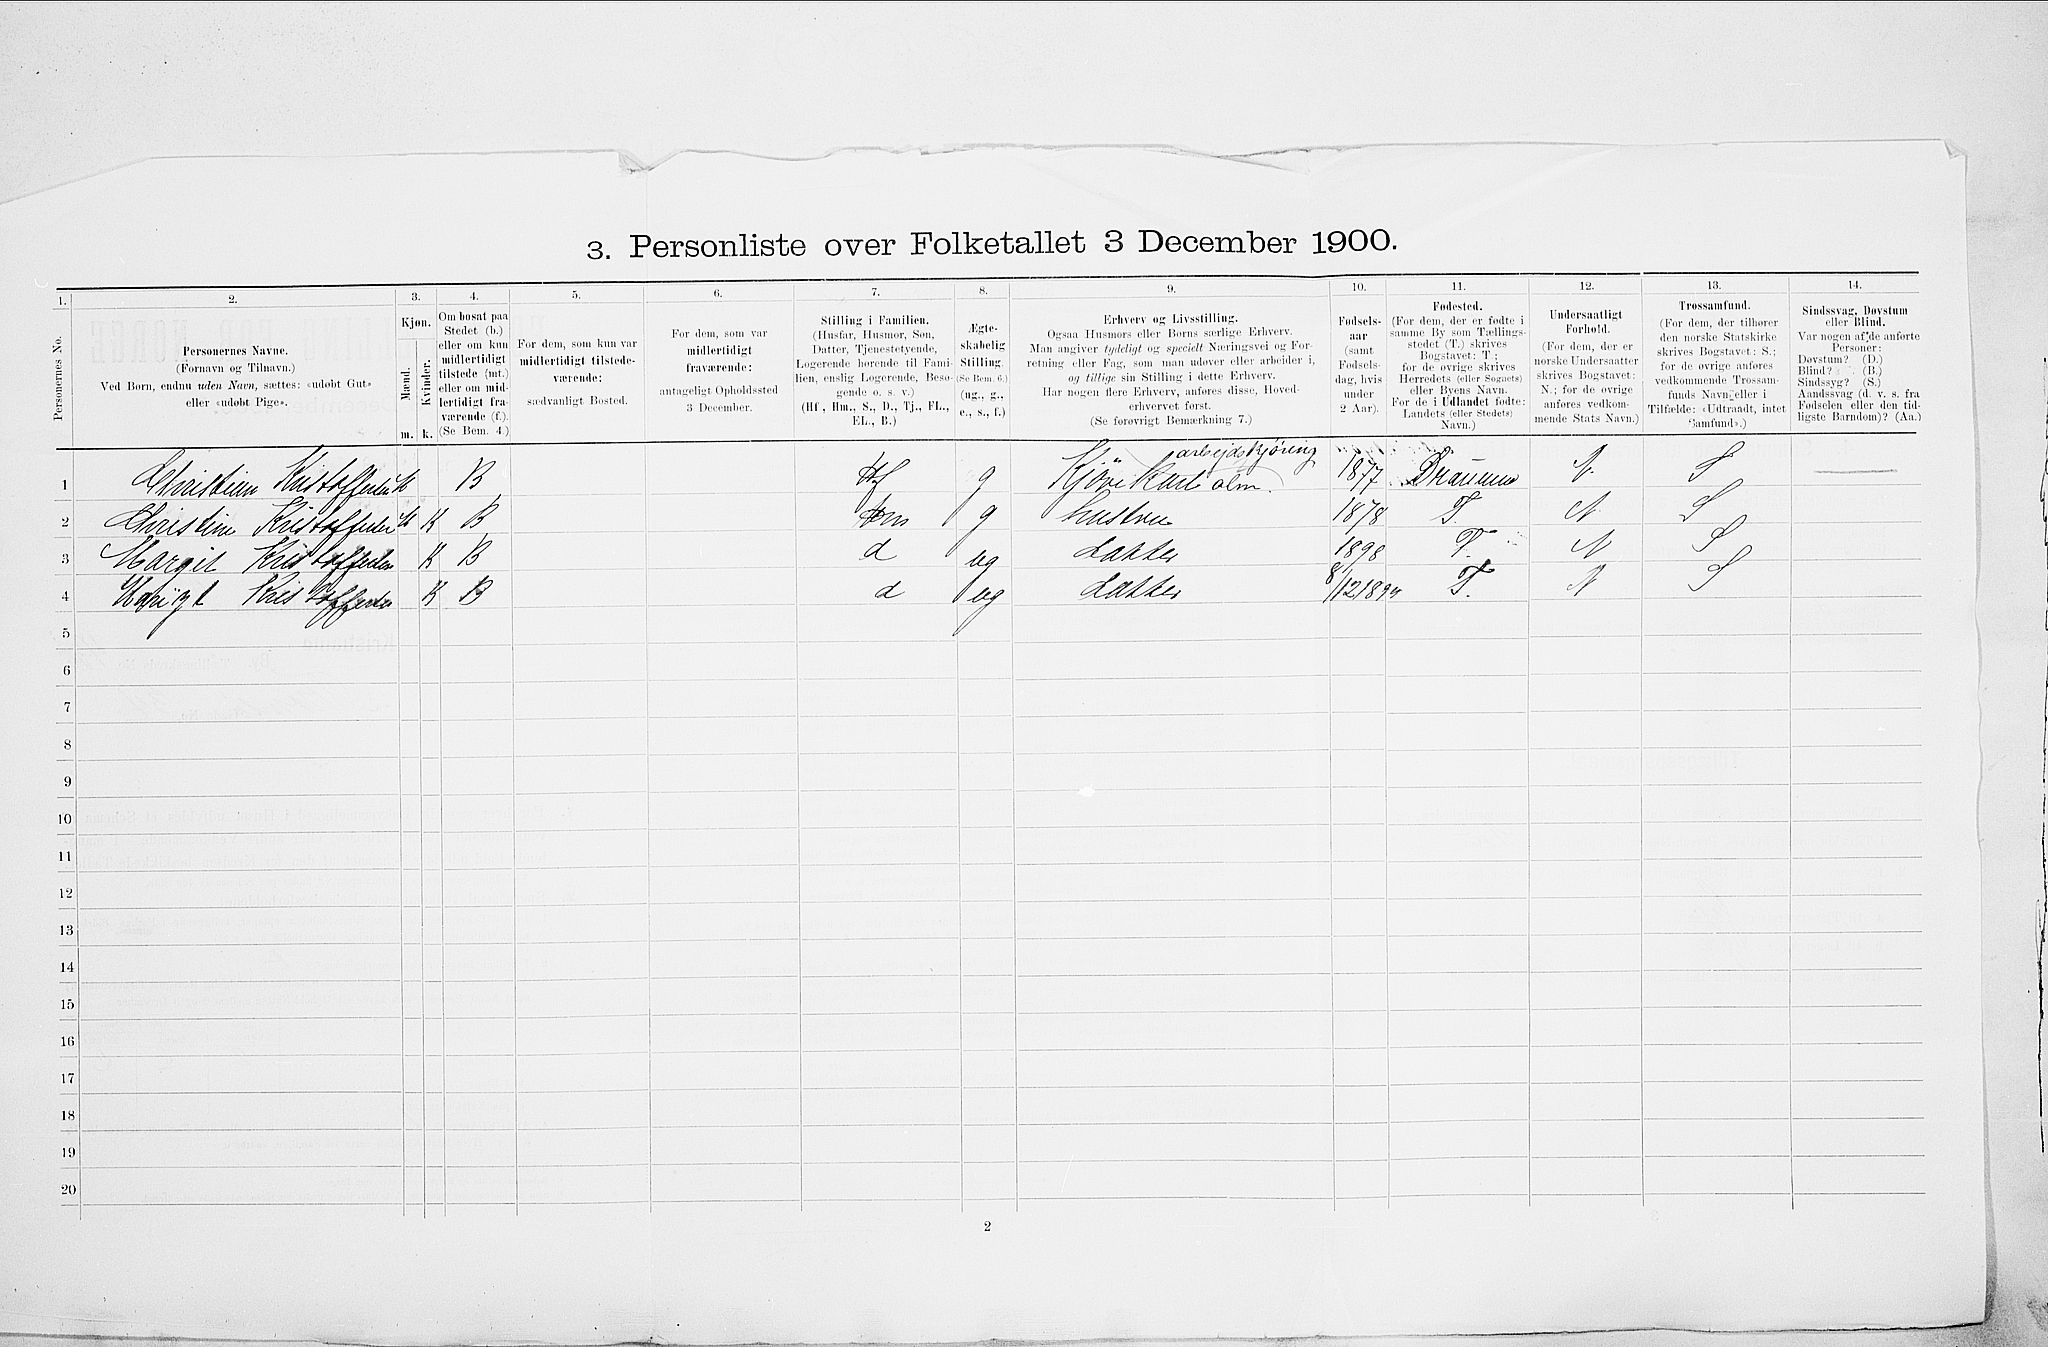 3. Personliste over Folketallet 3 December 1900.
1. 2. 3. 4. 5. 6. 7. 8. 9. 10. 11. 12. 13. 14.
Personernes No.
Personernes Navne.
(Fornavn og Tilnavn.)
Ved Børn, endnu uden Navn, sættes: «udøbt Gut»
eller «udøbt Pige».
Kjøn.
Mænd.
Kvinder.
m. k.
Om bosat paa
Stedet (b.)
eller om kun
midlertidigt
tilstede (mt.)
eller om mid-
lertidigt fra-
værende (f.).
(Se Bem. 4.)
For dem, som kun var
midlertidigt tilstede-
værende:
sædvanligt Bosted.
For dem, som var
midlertidigt
fraværende:
antageligt Opholdssted
3 December.
Stilling i Familien.
(Husfar, Husmor, Søn,
Datter, Tjenestetyende,
Logerende hørende til Fami-
lien, enslig Logerende, Besø-
gende o. s. v.)
(Hf., Hm., S., D., Tj., FL.,
EL., B.)
Ægte-
skabelig
Stilling.
(Se Bem. 6.)
(ug., g.,
e., s., f.)
Erhverv og Livsstilling.
Ogsaa Husmors eller Børns særlige Erhverv.
Man angiver tydeligt og specielt Næringsvei og For-
retning eller Fag, som man udøver eller arbeider i,
og tillige sin Stilling i dette Erhverv.
Har nogen flere Erhverv, anføres disse, Hoved-
erhvervet først.
(Se forøvrigt Bemærkning 7.)
Fødsels-
aar
(samt
Fødsels-
dag, hvis
under
2 Aar).
Fødested.
(For dem, der er fødte i
samme By som Tællings-
stedet (T.) skrives
Bogstavet: T;
for de øvrige skrives
Herredets (eller Sognets)
eller Byens Navn.
For de i Udlandet fødte:
Landets (eller Stedets)
Navn.)
Undersaatligt
Forhold.
(For dem, der er
norske Undersaatter
skrives Bogstavet:
N.; for de øvrige
anføres vedkom-
mende Stats Navn.)
Trossamfund.
(For dem, der tilhører
den norske Statskirke
skrives Bogstavet: S.;
for de øvrige anføres
vedkommende Trossam-
funds Navn, eller i
Tilfælde: «Udtraadt, intet
Samfund».)
Sindssvag, Døvstum
eller Blind.
Var nogen af de anførte
Personer:
Døvstum? (D.)
Blind? (B.)
Sindssyg? (S.)
Aandssvag (d. v. s. fra
Fødselen eller den tid-
ligste Barndom)? (Aa.)
arbejdskjøring
1 Christian Kristoffersen M B Hf g 1877 N S
2 Christine Kristoffersen K B Hm g hustru 1878 T. N S
3 Margit Kristoffersen K B d ug datter 1898 T. N S
4 Kristoffersen K B d ug datter T. N S
5
6
7
8
9
10
11
12
13
14
15
16
17
18
19
20
2